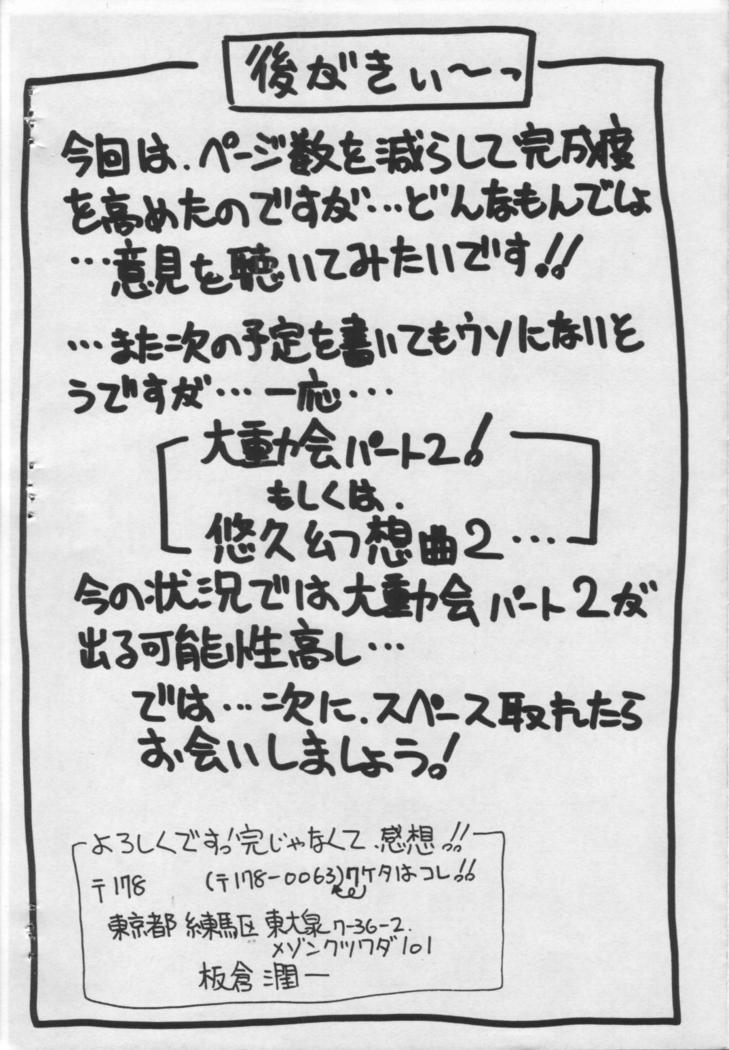 後がきぃ〜っ
今回は、ページ数を減らして完成度
を高めたのですが…どんなもんでしょ
…意見を聴いてみたいです!!
…また次の予定を書いてもウソにないと
うですが…一応…
大動会パート2!
もしくは、
悠久幻想曲2…
今の状況では大動会パート2が
出る可能性高し…
では…次に、スペース取れたら
お会いしましょう。!
よろしくですっ!完じゃなくて、感想!!
〒178 (〒178-0063)7ケタはコレ!!
東京都 練馬区 東大泉 7-36-2.
メゾンクツワダ101
板倉 潤一